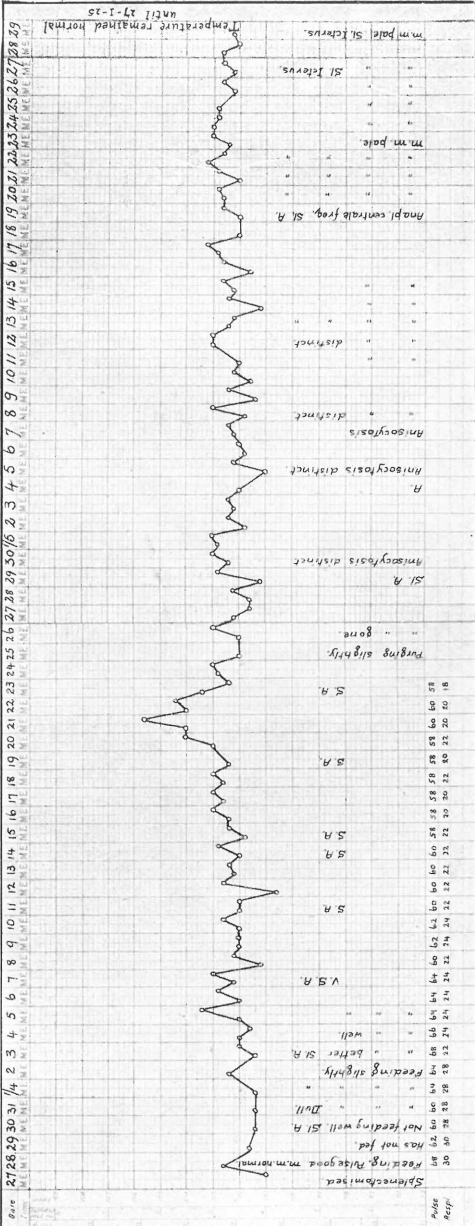 Date 27 28 29 30 31 1/4 2 3 4 5 6 7 8 9 10 11 12 13 14 15 16 17 18 19 20 21 22 23 24 25 26 27 28 29 30 1/5 2 3 4 5 6 7 8 9 10 11 12 13 14 15 16 17 18 19 20 21 22 23 24 25 26 27 28 29
Temperature remained normal
until 27-1-25
Splenectomised
Feeding. Pulse good m.m. normal
Has not fed.
Not feeding well. Sl. A
" " Dull "
Feeding slightly.
" better Sl. A.
" well. "
" " "
V.S.A
S.A
S.A
S.A
S.A.
S.A
Purging slightly.
" " gone.
Sl. A
Anisocytosis distinct
A.
Anisocytosis distinct.
Anisocytosis
" distinct
" distinct
Anapl. centrale freq. Sl. A.
m.m. pale.
Sl Icterus.
m.m pale Sl. Icterus.
Pulse 68 62 60 60 64 64 68 66 64 64 64 60 62 62 60 60 60 60 58 58 58 58 58 58 60 60 58
Respi 30 30 28 28 28 28 22 24 24 24 24 22 24 24 22 22 22 22 22 20 20 22 20 22 20 20 18